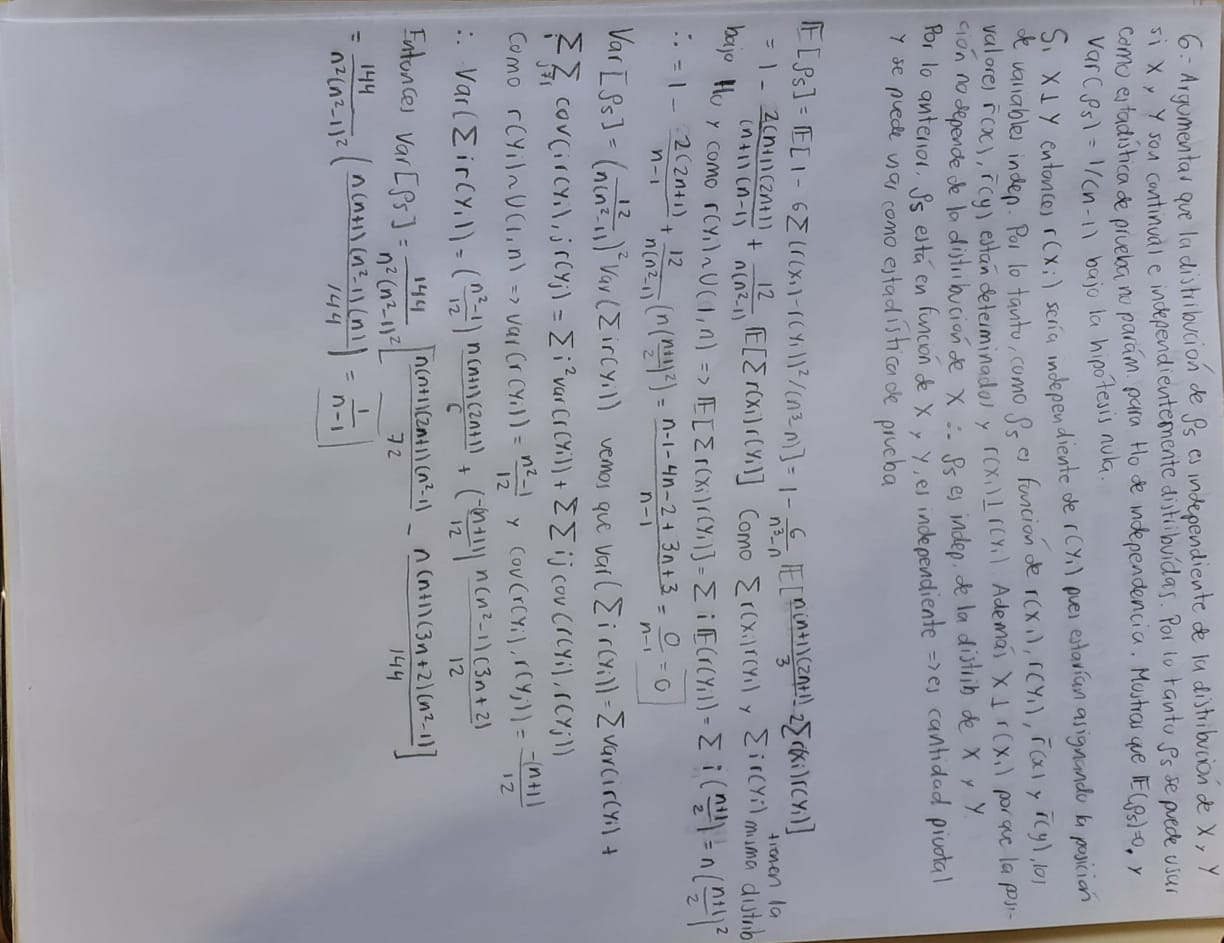 6.- Argumentar que la distribución de ρs es independiente de la distribución de X y Y
si X y Y son continuas e independientemente distribuidas. Por lo tanto ρs se puede usar
como estadística de prueba no parám para H₀ de independencia. Mostrar que 𝔼(ρs)=0, y
Var(ρs) = 1/(n-1) bajo la hipótesis nula.
Si X⊥Y entonces r(xi) sería independiente de r(Yi) pues estarían asignando la posición
de variables indep. Por lo tanto, como ρs es función de r(xi), r(Yi), r̄(x) y r̄(y), los
valores r̄(x), r̄(y) están determinados y r(xi)⊥r(Yi) Además X⊥r(xi) porque la posi-
ción no depende de la distribución de X ∴ ρs es indep. de la distrib de X y Y
Por lo anterior, ρs está en función de X y Y, es independiente => es cantidad pivotal
y se puede usar como estadística de prueba
𝔼[ρs] = 𝔼[1 - 6∑(r(xi) - r(Yi))²/(n³-n)] = 1 - 6/(n³-n) 𝔼[n(n+1)(2n+1)/3 - 2∑r(xi)r(Yi)]
= 1 - 2(n+1)(2n+1)/((n+1)(n-1)) + 12/(n(n²-1)) 𝔼[∑r(xi)r(Yi)] Como ∑r(xi)r(Yi) y ∑ir(Yi) tienen la misma distrib
bajo H₀ y como r(Yi)~U(1,n) => 𝔼[∑r(xi)r(Yi)] = ∑i𝔼(r(Yi)) = ∑i((n+1)/2) = n((n+1)/2)²
∴ = 1 - 2(2n+1)/(n-1) + 12/(n(n²-1)) (n((n+1)/2)²) = (n-1-4n-2+3n+3)/(n-1) = 0/(n-1) = 0
Var[ρs] = (12/(n(n²-1)))² Var(∑ir(Yi)) vemos que Var(∑ir(Yi)) = ∑Var(ir(Yi)) +
∑i∑j≠i cov(ir(Yi), jr(Yj)) = ∑i²Var(r(Yi)) + ∑∑ij cov(r(Yi), r(Yj))
Como r(Yi)~U(1,n) => Var(r(Yi)) = (n²-1)/12 y cov(r(Yi), r(Yj)) = -(n+1)/12
∴ Var(∑ir(Yi)) = ((n²-1)/12) n(n+1)(2n+1)/6 + (-(n+1)/12) n(n²-1)(3n+2)/12
Entonces Var[ρs] = 144/(n²(n²-1)²) [n(n+1)(2n+1)(n²-1)/72 - n(n+1)(3n+2)(n²-1)/144]
= 144/(n²(n²-1)²) (n(n+1)(n²-1)(n)/144) = 1/(n-1)